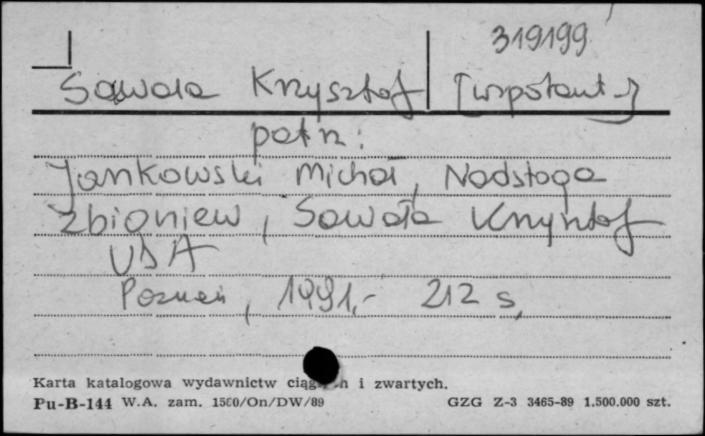 319199
Sawala Krzysztof [współaut.]
patrz:
Jankowski Michał, Nadstoga
Zbigniew, Sawała Krzysztof
USA
Poznań, 1991,- 212 s,
Karta katalogowa wydawnictw ciągłych i zwartych.
Pu-B-144 W.A. zam. 1560/On/DW/89 GZG Z-3 3465-89 1.500.000 szt.